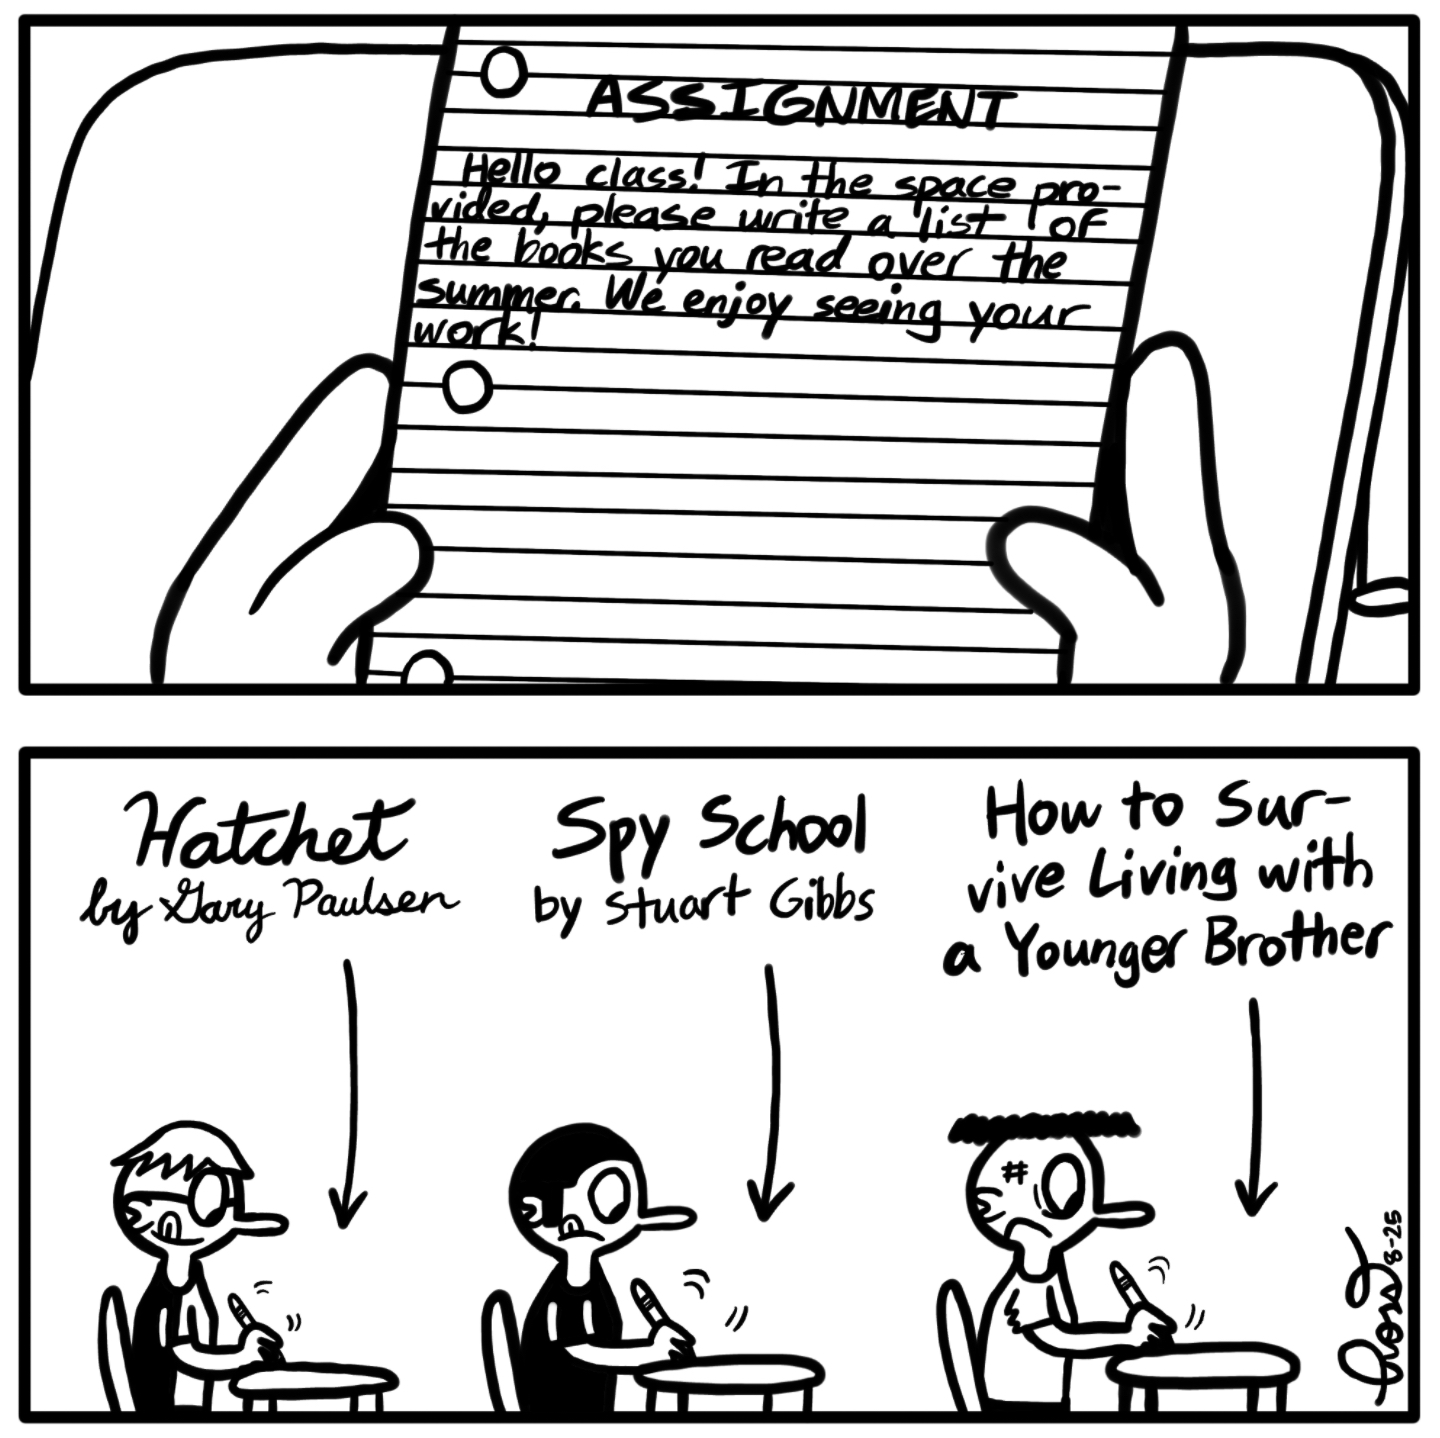 ASSIGNMENT
Hello class! In the space pro-
vided, please write a list of
the books you read over the
summer. We enjoy seeing your
work!
Hatchet
by Gary Paulsen
Spy School
by Stuart Gibbs
How to Sur-
vive Living with
a Younger Brother
#
8-25